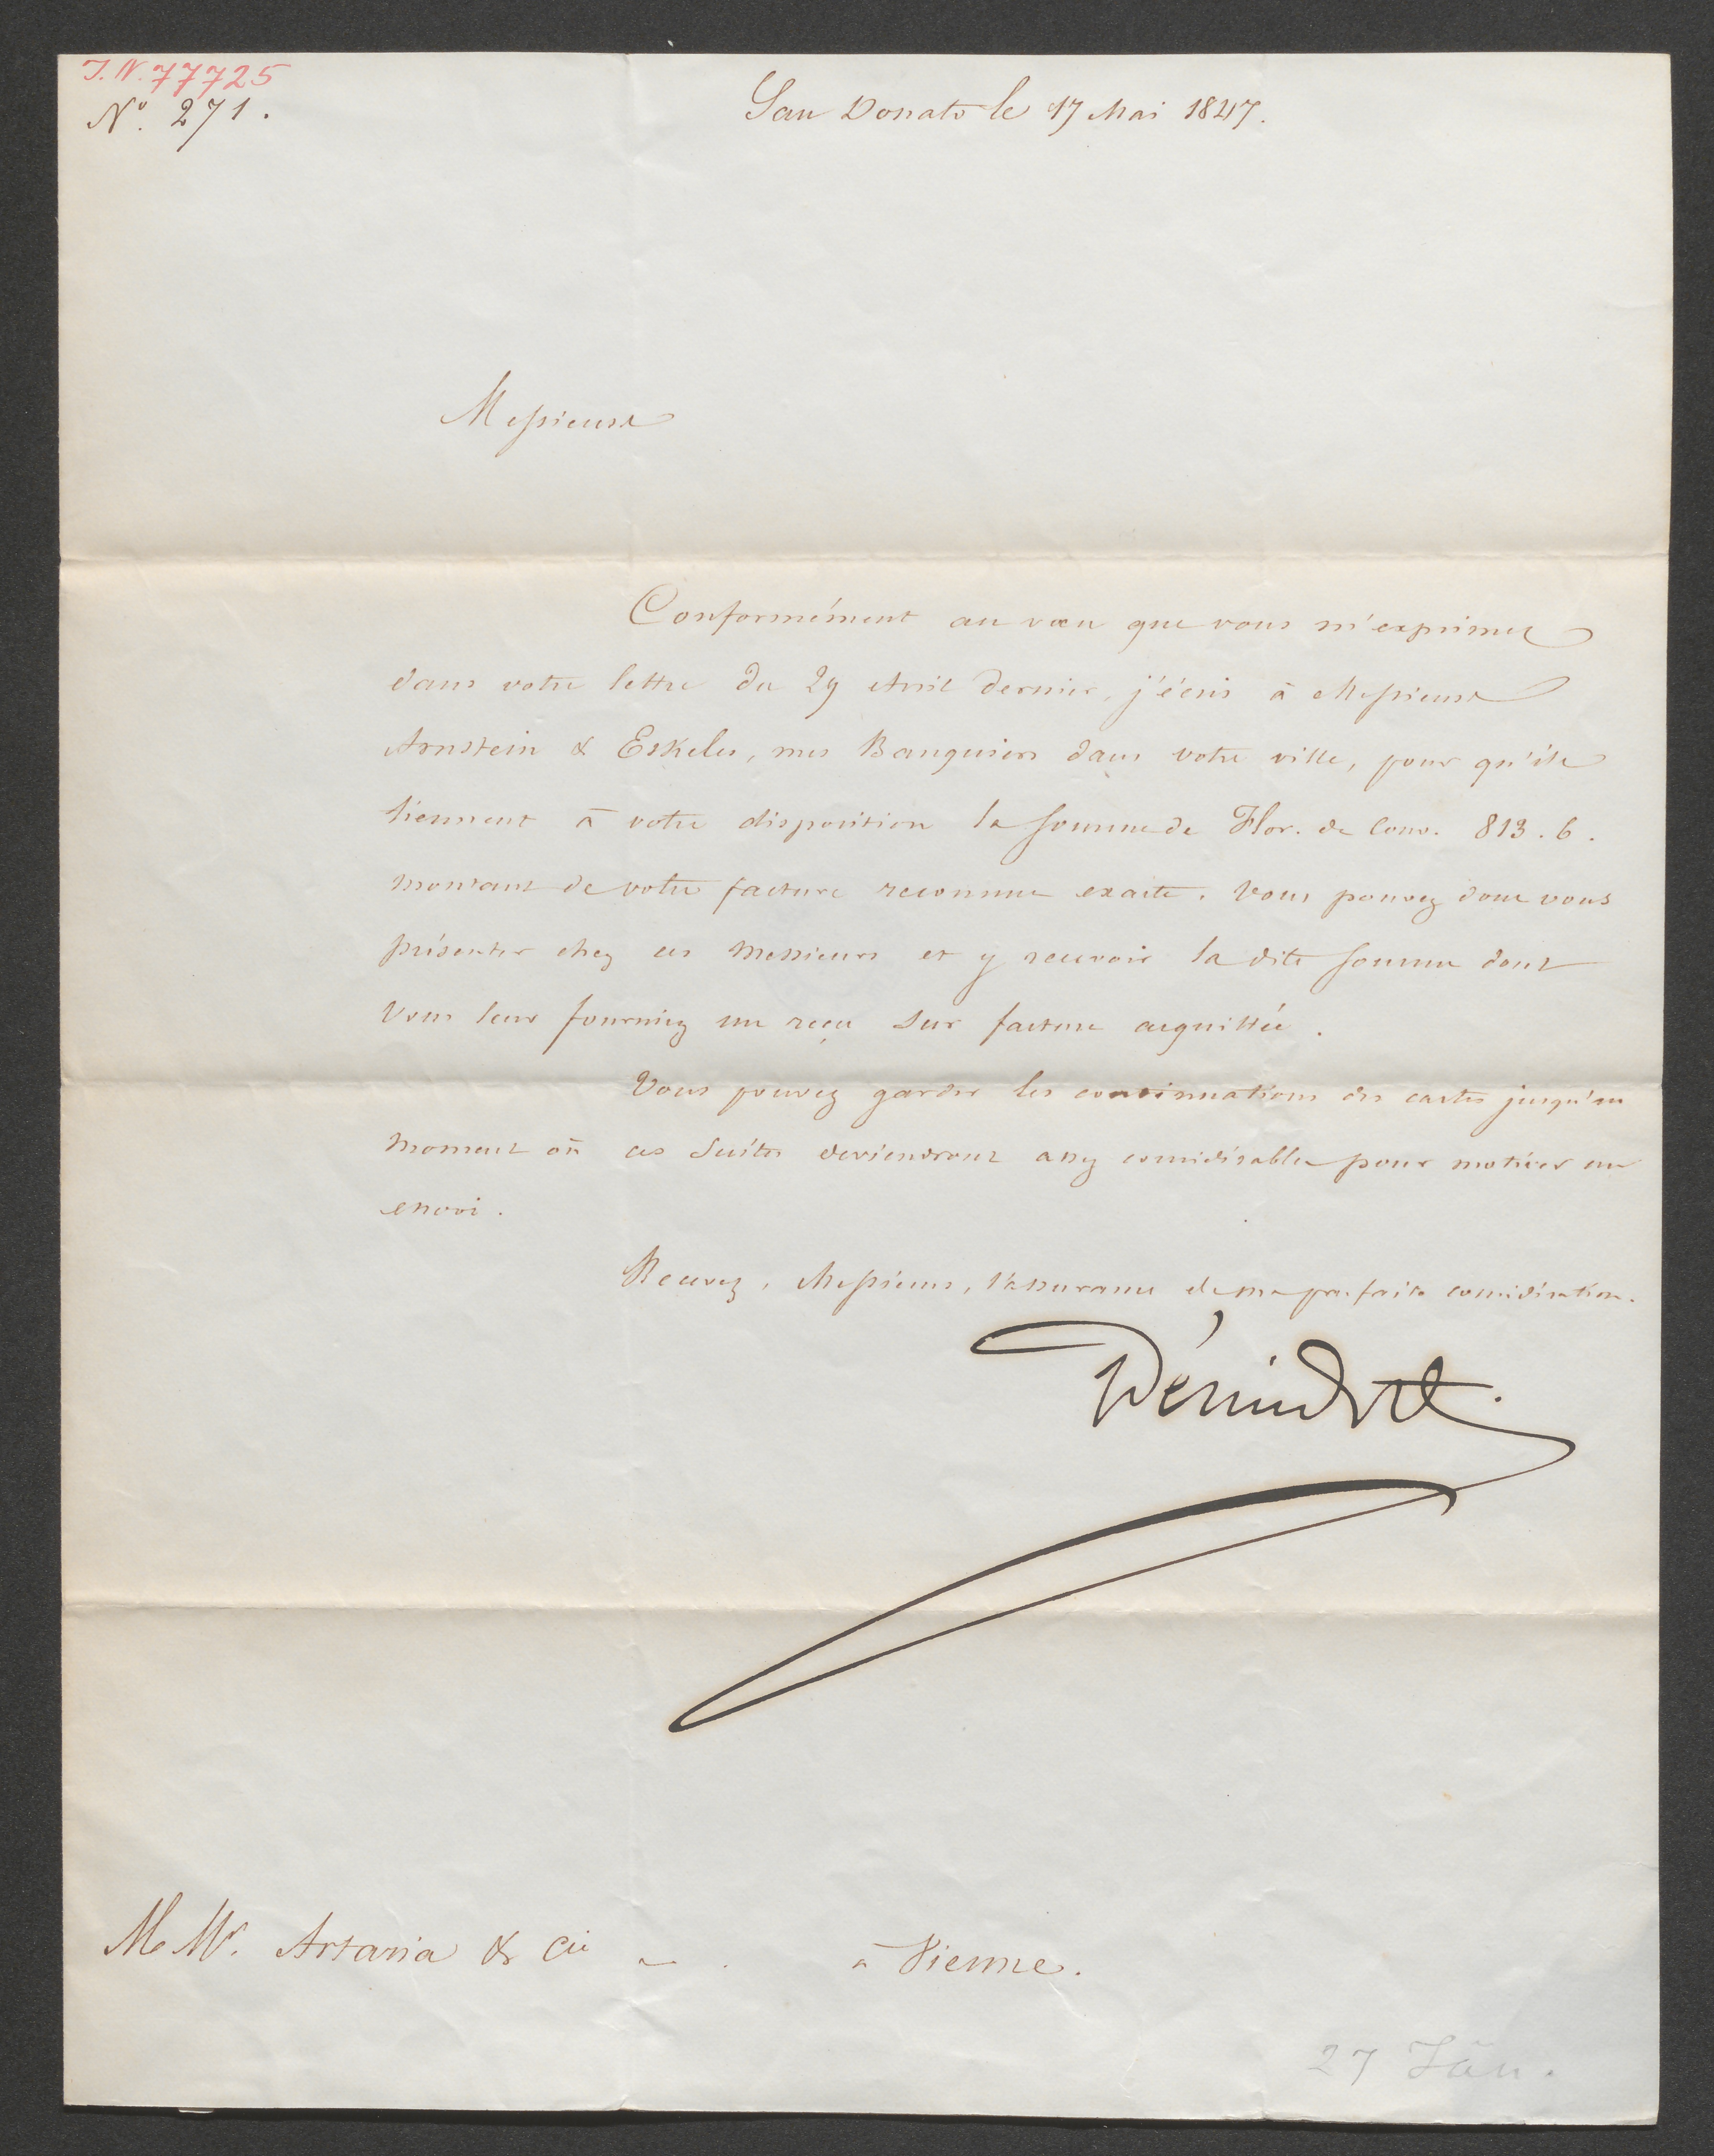 J. N. 77725
Nº. 271.
San Donato le 17 Mai 1847.
Messieurs
Conformément au vœu que vous m'exprimez
dans votre lettre du 29 Avril dernier, j'écris à Messieurs
Arnstein & Eskeles, mes Banquiers dans votre ville, pour qu'ils
tiennent à votre disposition la somme de Flor. de Conv. 813.6.
montant de votre facture reconnue exacte. Vous pouvez donc vous
présenter chez ces Messieurs et y recevoir la dite somme dont
vous leur fournirez un reçu sur facture acquittée.
Vous pouvez garder les continuations des cartes jusqu'au
moment où ces suites deviendront assez considérables pour motiver un
envoi.
Recevez, Messieurs, l'assurance de ma parfaite considération.
Démidoff.
M. Mrs. Artaria & Cie
à Vienne.
27 Jän.